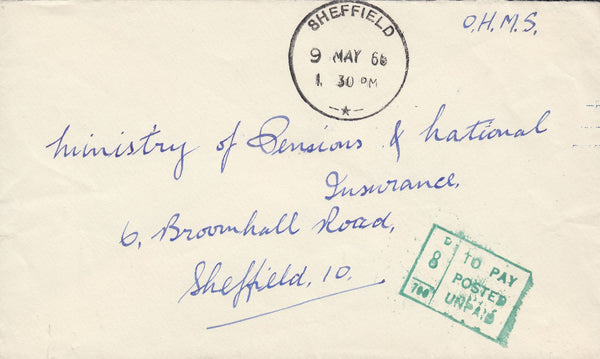 SHEFFIELD
9 MAY 66
1. 30 PM
O.H.M.S.
Ministry of Pensions & National
Insurance,
6, Broomhall Road,
Sheffield, 10.
8D TO PAY
POSTED
UNPAID